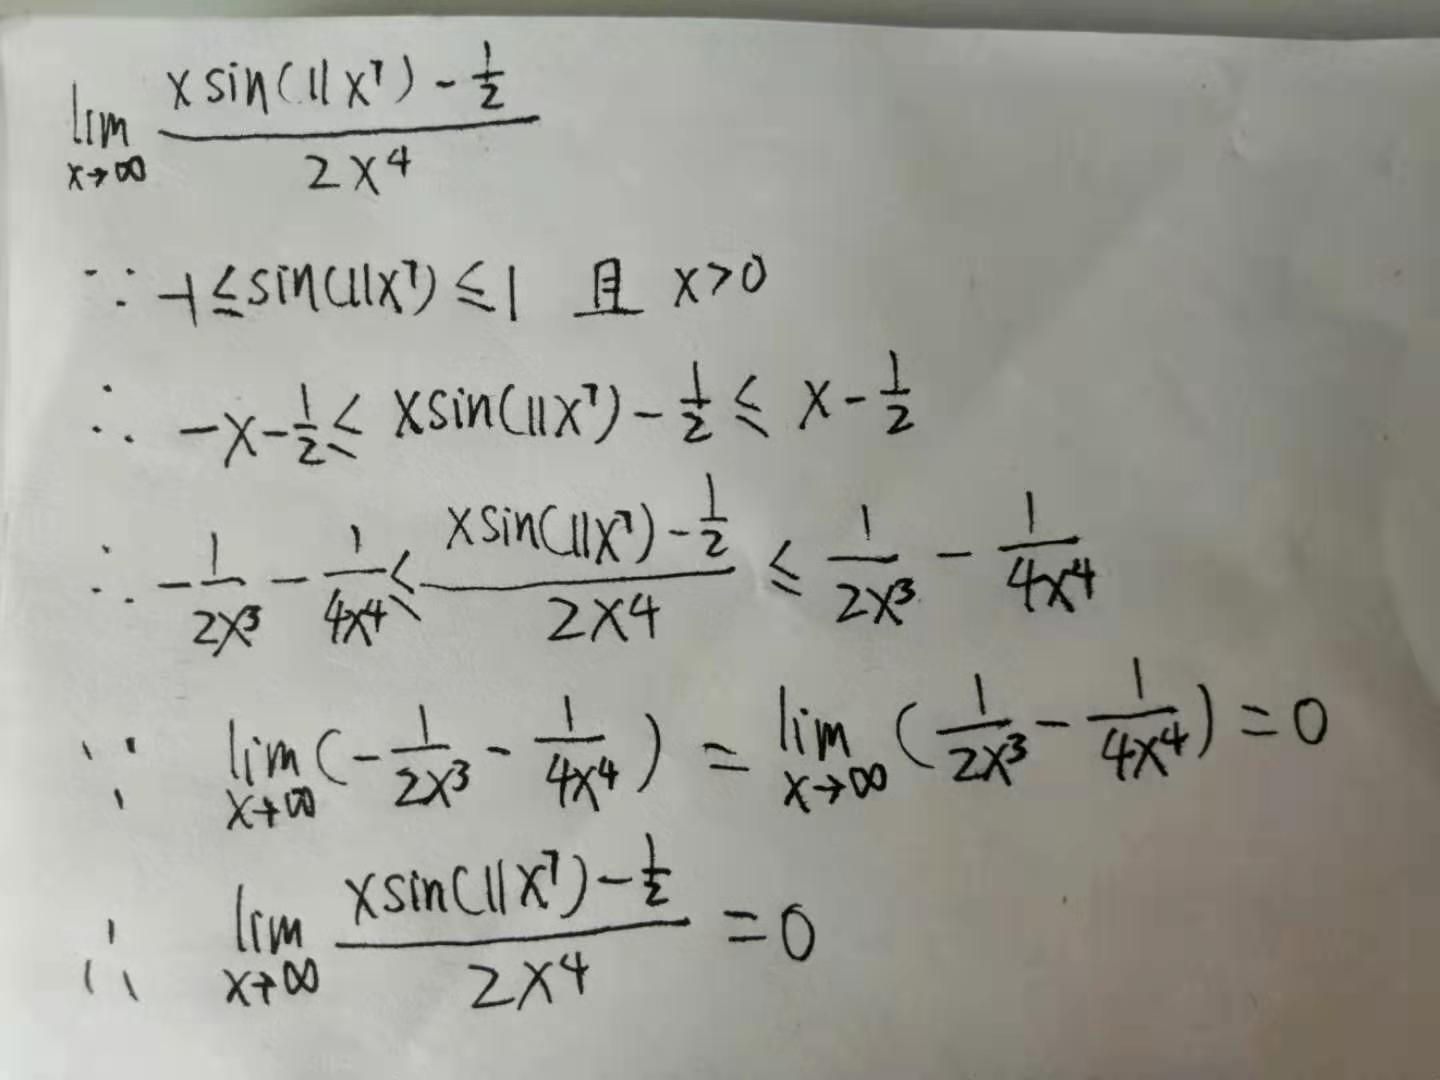 lim_{x→∞} \frac{x sin(11x^7) - \frac{1}{2}}{2x^4}
∵ -1 ≤ sin(11x^7) ≤ 1 且 x>0
∴ -x - \frac{1}{2} ≤ x sin(11x^7) - \frac{1}{2} ≤ x - \frac{1}{2}
∴ -\frac{1}{2x^3} - \frac{1}{4x^4} ≤ \frac{x sin(11x^7) - \frac{1}{2}}{2x^4} ≤ \frac{1}{2x^3} - \frac{1}{4x^4}
∵ lim_{x→∞} (-\frac{1}{2x^3} - \frac{1}{4x^4}) = lim_{x→∞} (\frac{1}{2x^3} - \frac{1}{4x^4}) = 0
∴ lim_{x→∞} \frac{x sin(11x^7) - \frac{1}{2}}{2x^4} = 0